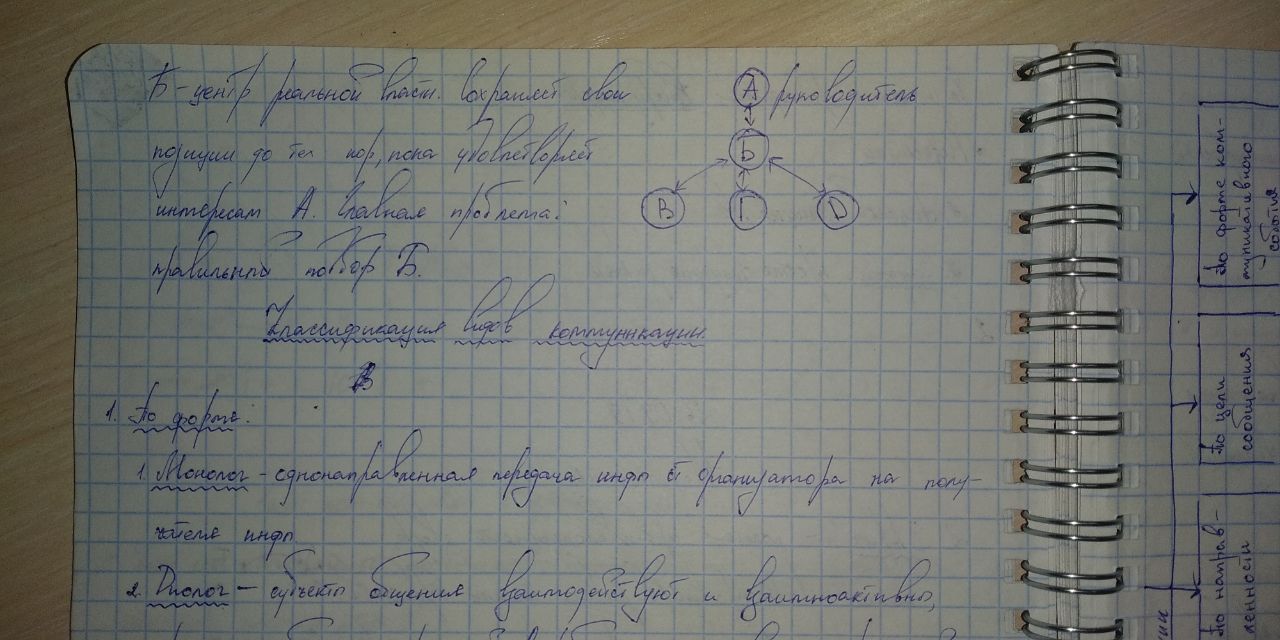 Б - центр реальной власти. Сохраняет свои
позиции до тех пор, пока удовлетворяет
интересам А. Главная проблема:
правильный подбор Б.
А руководитель
Б
В Г D
Классификация видов коммуникации.
В
1. По форме:
1. Монолог - однонаправленная передача инфы от организатора на полу-
чателя инфы
2. Диалог - субъекты общения взаимодействуют и взаимноактивны,
По форме ком-
муникативного
события
По цели
сообщения
По направ-
ленности